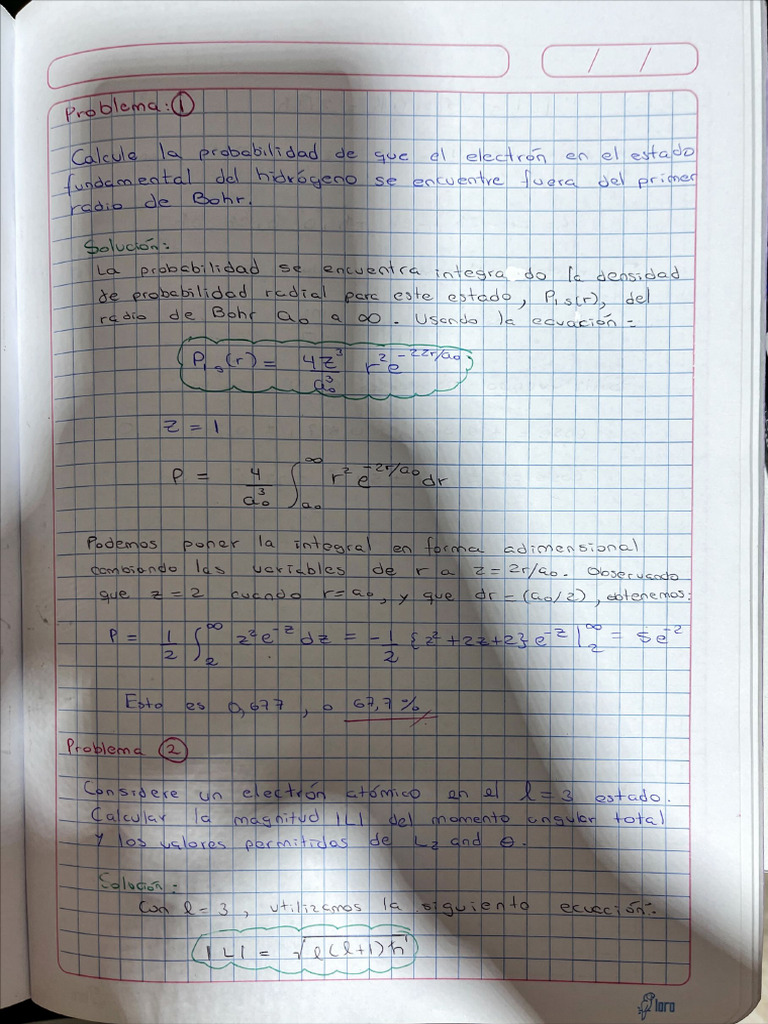 / /
Problema: ①
Calcule la probabilidad de que el electrón en el estado
fundamental del hidrógeno se encuentre fuera del primer
radio de Bohr.
Solución:
La probabilidad se encuentra integra do la densidad
de probabilidad radial para este estado, P₁s(r), del
radio de Bohr a₀ a ∞. Usando la ecuación:
P₁s(r) = 4z³/a₀³ r² e^(-2zr/a₀)
z = 1
P = 4/a₀³ ∫_a₀^∞ r² e^(-2r/a₀) dr
Podemos poner la integral en forma adimensional
cambiando las variables de r a z = 2r/a₀. Observando
que z = 2 cuando r = a₀, y que dr = (a₀/2), obtenemos:
P = 1/2 ∫_2^∞ z² e^(-z) dz = -1/2 {z² + 2z + 2} e^(-z) |_2^∞ = 5e^(-2)
Esto es 0,677, o 67,7%
Problema ②
Considere un electrón atómico en el l = 3 estado.
Calcular la magnitud |L| del momento angular total
Y los valores permitidos de Lz and θ.
Solución:
Con l = 3, utilizamos la siguiento ecuación:
|L| = √(l(l+1)ħ)
loro